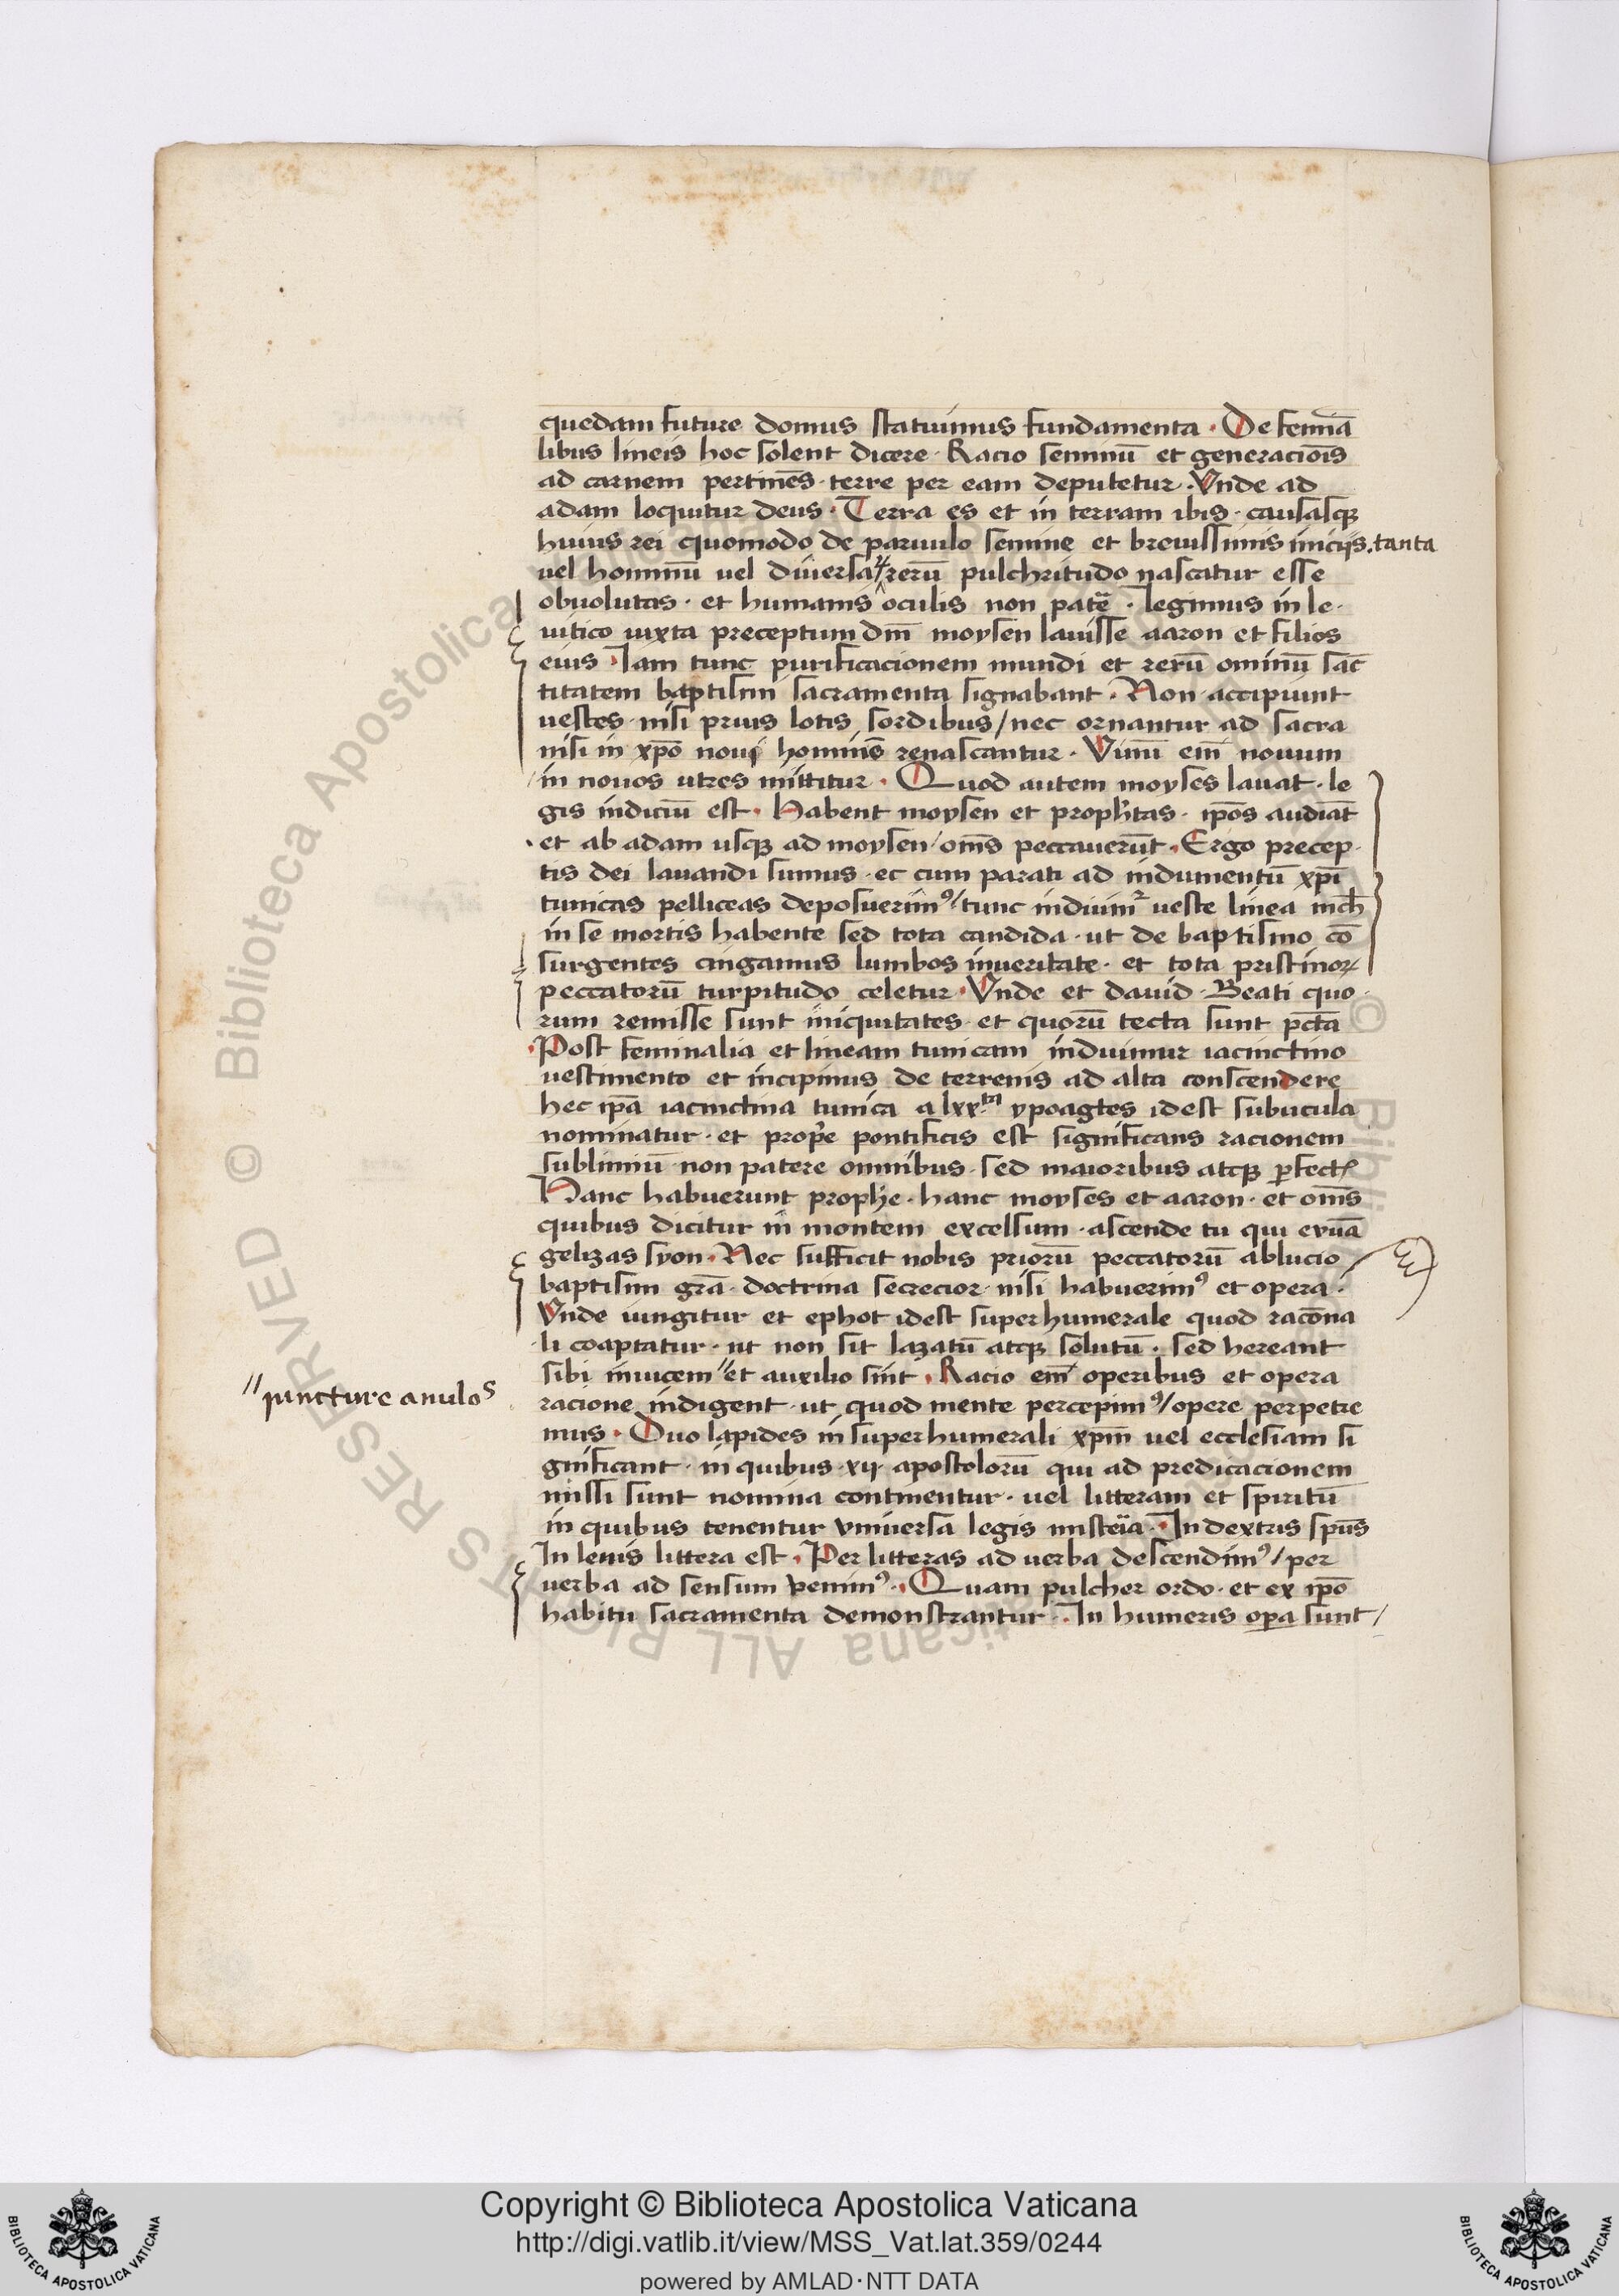 quedam future domus statuimus fundamenta · De femīa
libus lineis hoc solent dicere · Racio seminū et generaciōis
ad carnem pertinēs · terre per eam deputetur · Vnde ad
adam loquitur deus · Terra es et in terram ibis · causasqꝫ
huius rei quomodo de paruulo semine et breuissimis iniciis · tanta
uel hominū uel diuersaꝝ rerū pulchritudo nascatur esse
obuolutas · et humanis oculis non patē · legimus in le·
uitico iuxta preceptum dm̄ moysen lauisse aaron et filios
eius · Iam tunc purificacionem mundi et rerū ominū sāc
titatem baptismi sacramenta signabant · Non accipiunt
uestes · nisi prius lotis sordibus / nec ornantur ad sacra
nisi in xp̄o noui homīes renascantur · Vinū em̄ nouum
in nouos utres mittitur · Quod autem moyses lauat · le
gis indiciū est · Habent moysen et proph̄tas · ip̄os audiāt
· et ab adam usqꝫ ad moysen / om̄s peccauerūt · Ergo precep·
tis dei lauandi sumus · ec cum parati ad indumentū xp̄i
tunicas pelliceas deposuerimꝰ / tunc induimr̄ ueste linea nich̄
in se mortis habente sed tota candida · ut de baptismo cō
surgentes cingamus lumbos inueritate · et tota pristinoꝝ
peccatorū turpitudo celetur · Vnde et dauid · Beati quo·
rum remisse sunt iniquitates · et quorū tecta sunt pc̄ta
· Post feminalia et lineam tunicam induimur iacinctino
uestimento et incipimus de terrenis ad alta conscendere
hec ip̄a iacinctina tunica a lxx.ta ypoagtes idest subucula
nominatur · et prop̄e pontificis est significans racionem
sublimiū non patere omnibus · sed maioribus atqꝫ ꝑfectꝭ
Hanc habuerunt proph̄e · hanc moyses et aaron · et om̄s
quibus dicitur in montem excelsum · ascende tu qui euuā
gelizas syon · Nec sufficit nobis priorū peccatorū ablucio /
baptismi grā · doctrina secrecior · nisi habuerimꝰ et opera ·
Vnde iungitur et ephot idest superhumerale quod racōna
li coaptatur · ut non sit laxatū atqꝫ solutū · sed hereant
sibi inuicem // et auxilio sint · Racio em̄ operibus et opera
// iuncture anulos
racione indigent · ut quod mente percepimꝰ / opere perpetre
mus · Duo lapides in superhumerali xp̄m uel ecclesiam si
gnificant · in quibus · xij · apostolorū qui ad predicacionem
missi sunt nomina continentur · uel litteram et spiritū
in quibus tenentur vniuersa legis misteīa · In dextris sp̄us
In leuis littera est · Per litteras ad uerba descendimꝰ / per
uerba ad sensum venimꝰ · Quam pulcher ordo · et ex ip̄o
habitu sacramenta demonstrantur · In humeris oꝑa sunt /
© Biblioteca Apostolica Vaticana ALL RIGHTS RESERVED
Copyright © Biblioteca Apostolica Vaticana
http://digi.vatlib.it/view/MSS_Vat.lat.359/0244
powered by AMLAD·NTT DATA
BIBLIOTECA APOSTOLICA VATICANA
BIBLIOTECA APOSTOLICA VATICANA